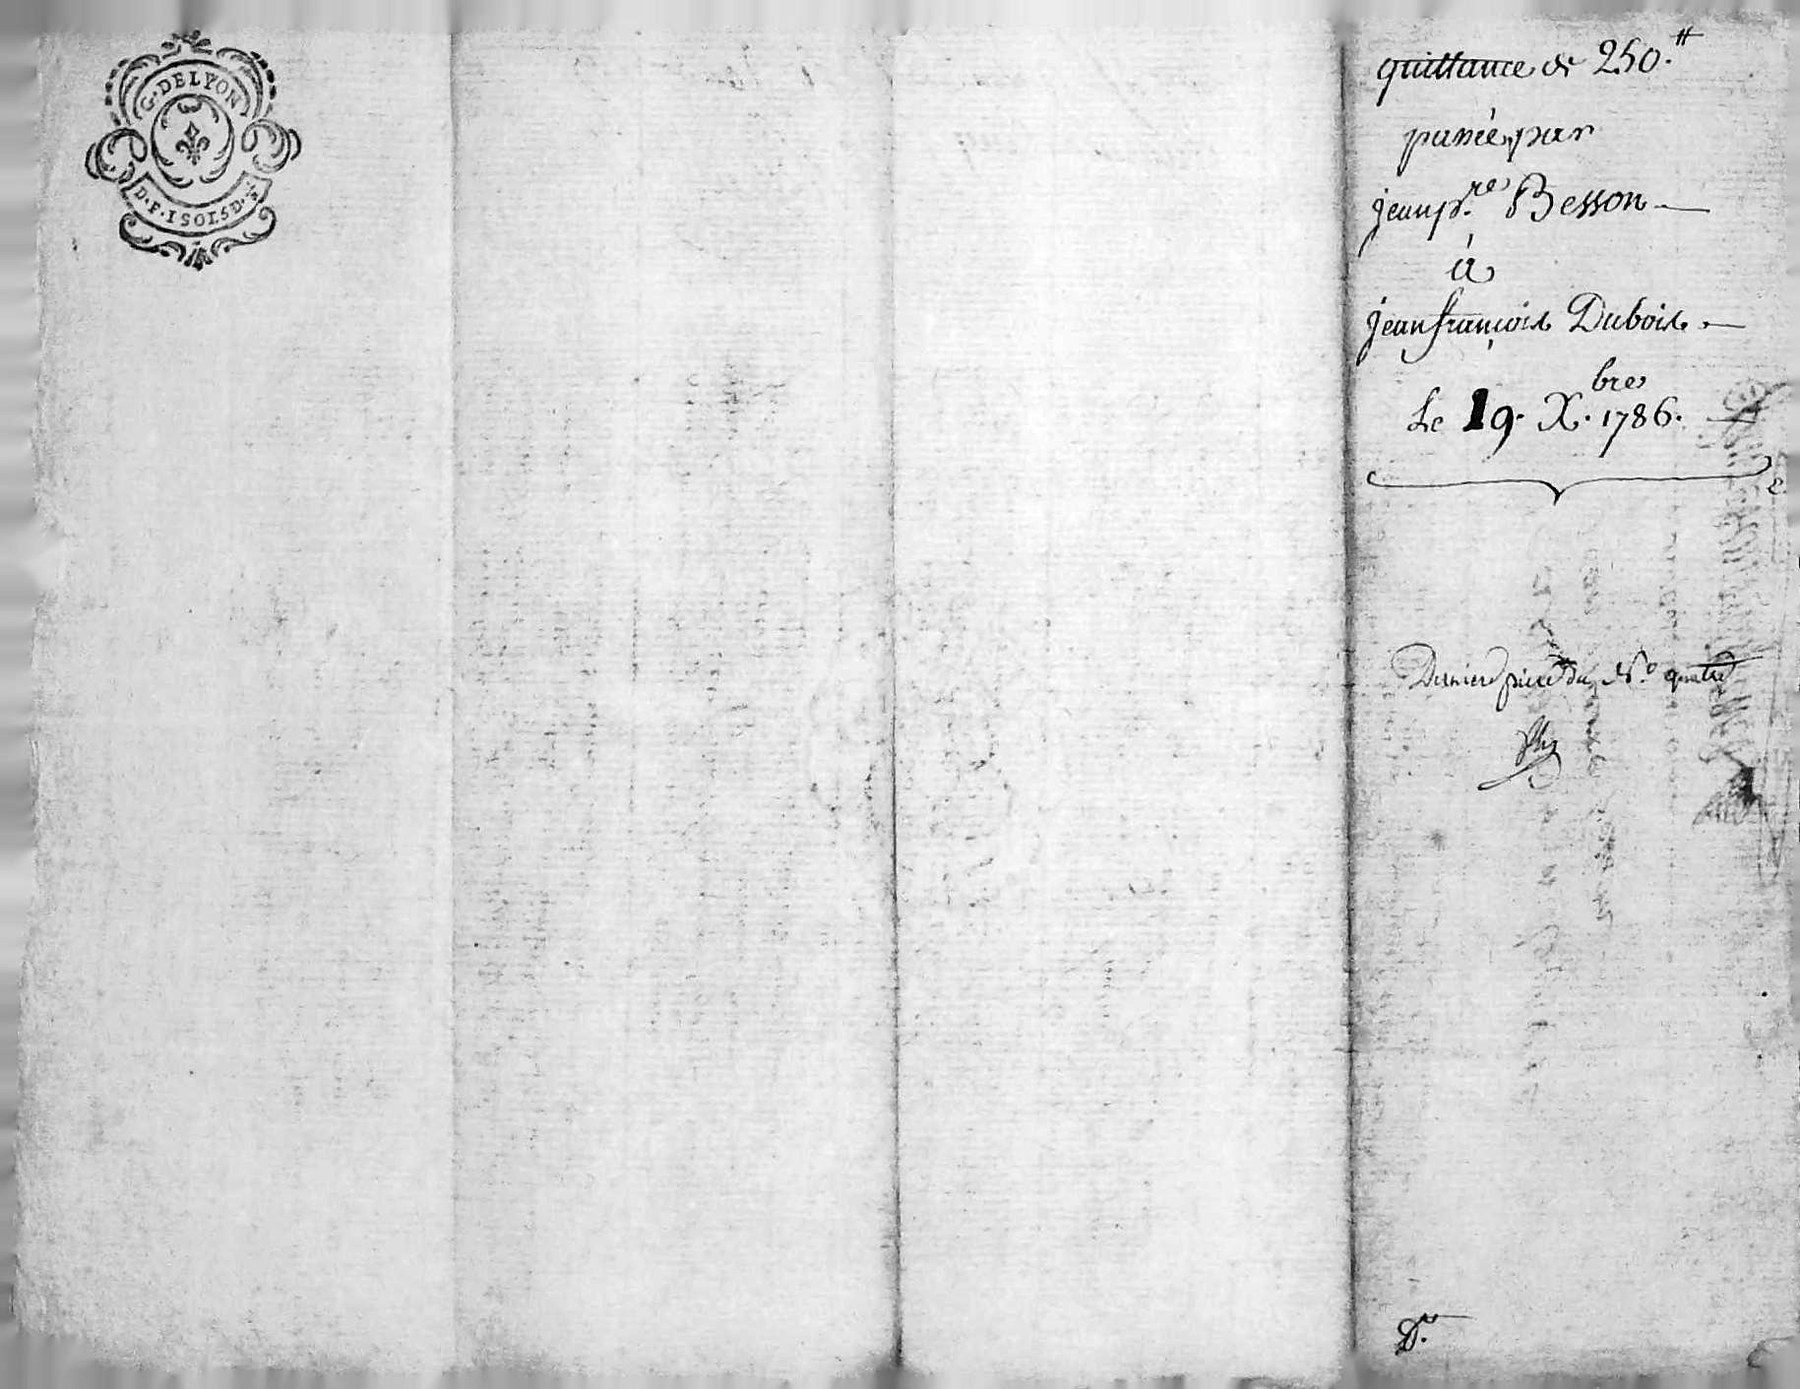 G. DE LYON
D. F. 1 SOL 5 D.
quittance de 250.tt
passée par
jean p.re Besson —
à
jean françois Dubois. —
Le 19. Xbre. 1786.
Derniere piece du N.o quatre